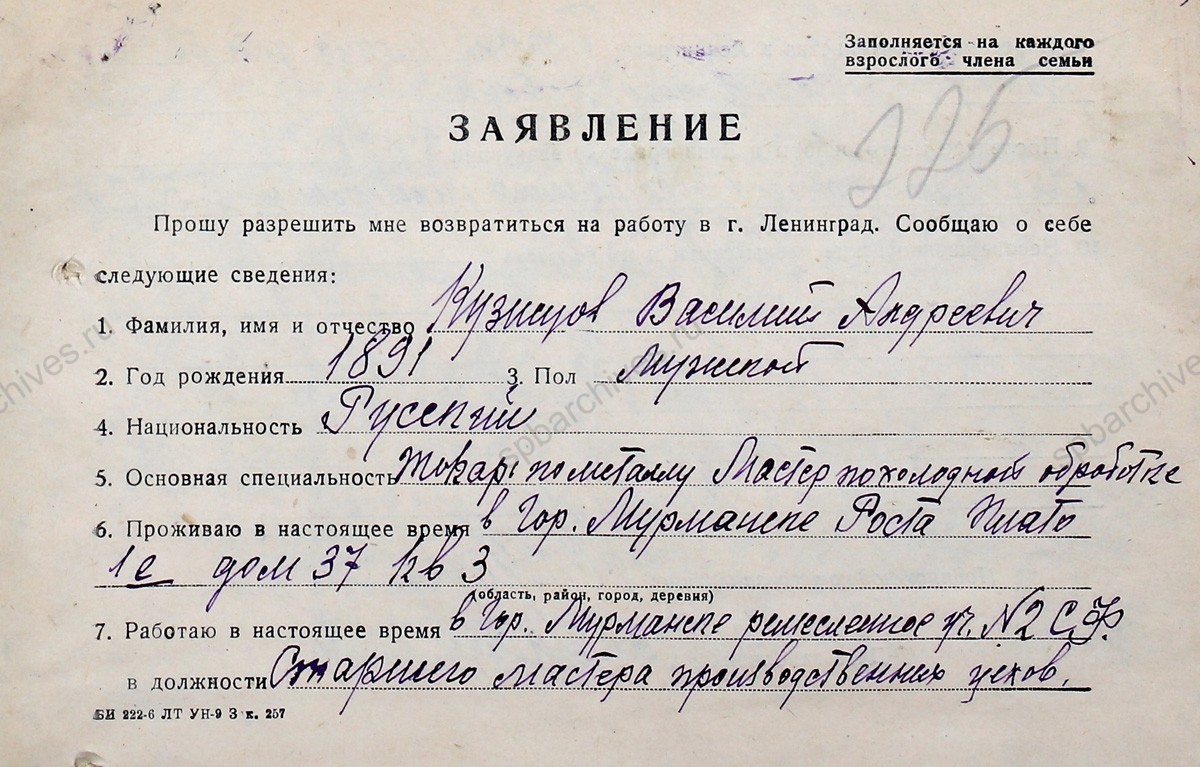 Заполняется на каждого
взрослого члена семьи
226
ЗАЯВЛЕНИЕ
Прошу разрешить мне возвратиться на работу в г. Ленинград. Сообщаю о себе
следующие сведения:
1. Фамилия, имя и отчество Кузнецов Василий Андреевич
2. Год рождения 1891 3. Пол Мужской
4. Национальность Русский
5. Основная специальность Токарь по металлу Мастер по холодной обработке
6. Проживаю в настоящее время в Гор. Мурманске Роста Плато
1е дом 37 кв 3
(область, район, город, деревня)
7. Работаю в настоящее время в Гор. Мурманске ремесленное уч. N2 С.Ф.
в должности Старшего мастера производственных цехов.
БИ 222-6 ЛТ УН-9 З к. 257
spbarchives.ru
spbarchives.ru
spbarchives.ru